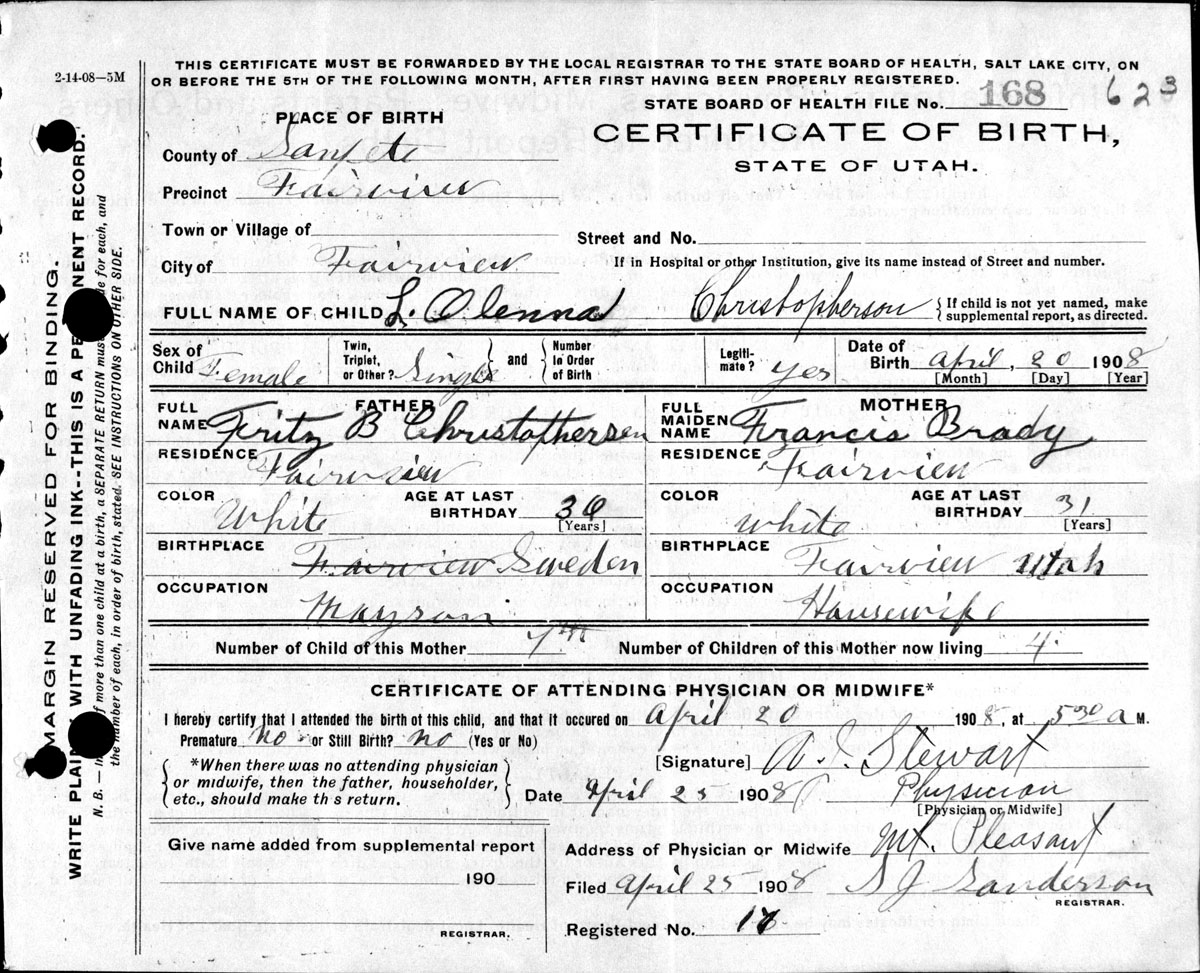 2-14-08—5M
THIS CERTIFICATE MUST BE FORWARDED BY THE LOCAL REGISTRAR TO THE STATE BOARD OF HEALTH, SALT LAKE CITY, ON
OR BEFORE THE 5TH OF THE FOLLOWING MONTH, AFTER FIRST HAVING BEEN PROPERLY REGISTERED.
STATE BOARD OF HEALTH FILE No. 168 623
PLACE OF BIRTH
CERTIFICATE OF BIRTH,
STATE OF UTAH.
County of Sanpete
Precinct Fairview
Town or Village of
Street and No.
City of Fairview
If in Hospital or other Institution, give its name instead of Street and number.
FULL NAME OF CHILD L. Olenna Christopherson { If child is not yet named, make
supplemental report, as directed.
Sex of Child Female
Twin, Triplet, or Other? Single } and { Number In Order of Birth
Legiti-mate? yes
Date of Birth April, 20 1908
[Month] [Day] [Year]
FATHER
FULL NAME Fritz B Christophersen
MOTHER
FULL MAIDEN NAME Francis Brady
RESIDENCE Fairview
RESIDENCE Fairview
COLOR White AGE AT LAST BIRTHDAY 36 [Years]
COLOR White AGE AT LAST BIRTHDAY 31 [Years]
BIRTHPLACE Fairview Sweden
BIRTHPLACE Fairview Utah
OCCUPATION Mayson
OCCUPATION Housewife
Number of Child of this Mother 7th Number of Children of this Mother now living 4.
CERTIFICATE OF ATTENDING PHYSICIAN OR MIDWIFE*
I hereby certify that I attended the birth of this child, and that it occured on April 20 1908, at 530 a M.
Premature no or Still Birth? no (Yes or No)
*When there was no attending physician
or midwife, then the father, householder,
etc., should make th s return.
[Signature] A. J. Stewart
Date April 25 1908 Physician
[Physician or Midwife]
Give name added from supplemental report
190
REGISTRAR.
Address of Physician or Midwife Mt. Pleasant
Filed April 25 1908 S J Sanderson
REGISTRAR.
Registered No.
MARGIN RESERVED FOR BINDING.
WRITE PLAIN WITH UNFADING INK--THIS IS A PE NENT RECORD.
N. B.— In f more than one child at a birth, a SEPARATE RETURN mus de for each, and
the number of each, in order of birth, stated. SEE INSTRUCTIONS ON OTHER SIDE.